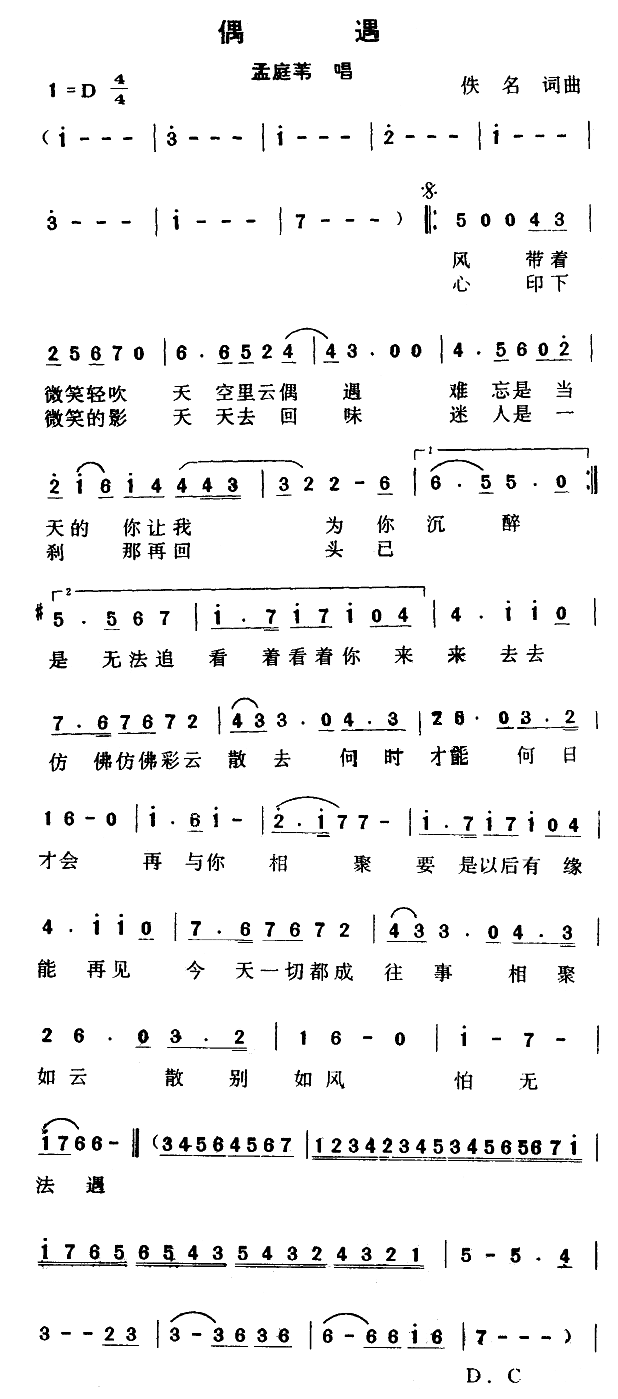 偶 遇
孟庭苇 唱
1=D 4/4
佚 名 词曲
(i - - - | 3 - - - | i - - - | 2 - - - | i - - - |
3 - - - | i - - - | 7 - - - ) ‖: 5 0 0 4 3 |
风 带着
心 印下
2 5 6 7 0 | 6 . 6 5 2 4 | 4 3 . 0 0 | 4 . 5 6 0 2 |
微笑轻吹 天 空里云偶 遇 难 忘是 当
微笑的影 天 天去 回 味 迷 人是 一
2 i 6 i 4 4 4 3 | 3 2 2 - 6 | 6 . 5 5 . 0 :‖
天的 你让我 为 你 沉 醉
刹 那再回 头 已
#5 . 5 6 7 | i . 7 i 7 i 0 4 | 4 . i i 0 |
是 无法追 看 着看着你 来 来 去去
7 . 6 7 6 7 2 | 4 3 3 . 0 4 . 3 | 2 6 . 0 3 . 2 |
仿 佛仿佛彩云 散 去 何 时 才能 何 日
1 6 - 0 | i . 6 i - | 2 . i 7 7 - | i . 7 i 7 i 0 4 |
才会 再 与你 相 聚 要 是以后有 缘
4 . i i 0 | 7 . 6 7 6 7 2 | 4 3 3 . 0 4 . 3 |
能 再见 今 天一切都成 往 事 相 聚
2 6 . 0 3 . 2 | 1 6 - 0 | i - 7 - |
如云 散 别 如风 怕 无
i 7 6 6 - ‖ (3 4 5 6 4 5 6 7 | 1 2 3 4 2 3 4 5 3 4 5 6 5 6 7 i |
法 遇
i 7 6 5 6 5 4 3 5 4 3 2 4 3 2 1 | 5 - 5 . 4 |
3 - - 2 3 | 3 - 3 6 3 6 | 6 - 6 6 i 6 | 7 - - - )
D. C